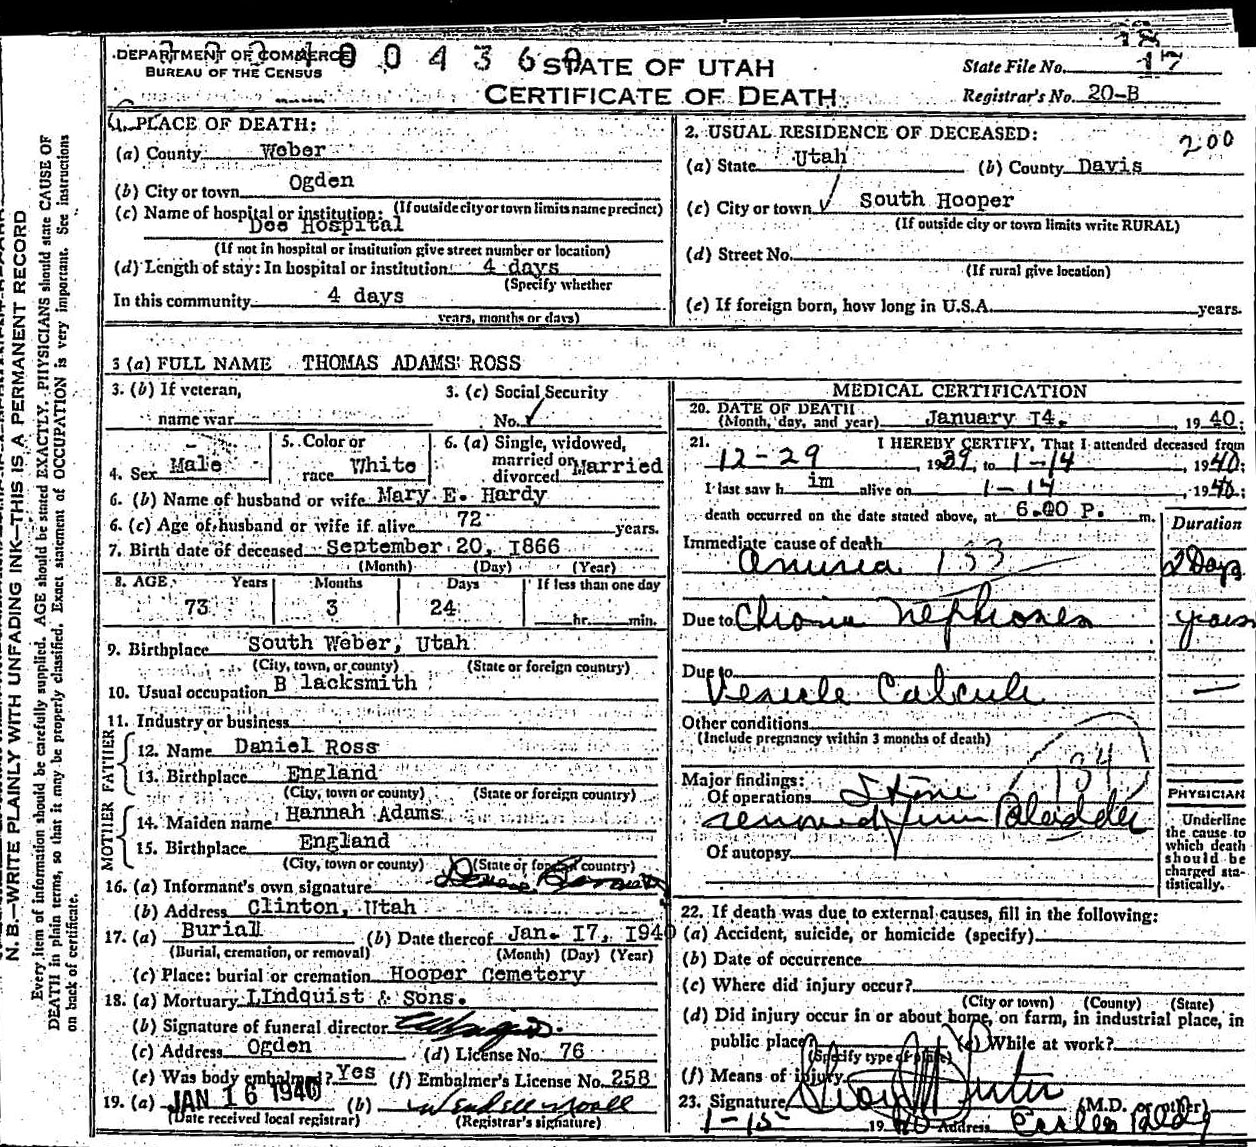 DEPARTMENT OF COMMERCE
BUREAU OF THE CENSUS
0 0 4 3 6 0
STATE OF UTAH
CERTIFICATE OF DEATH
18
State File No. 17
Registrar's No. 20-B
1. PLACE OF DEATH:
(a) County Weber
(b) City or town Ogden
(If outside city or town limits name precinct)
(c) Name of hospital or institution:
Dee Hospital
(If not in hospital or institution give street number or location)
(d) Length of stay: In hospital or institution 4 days
(Specify whether
In this community 4 days
years, months or days)
2. USUAL RESIDENCE OF DECEASED:
200
(a) State Utah (b) County Davis
(c) City or town South Hooper
(If outside city or town limits write RURAL)
(d) Street No.
(If rural give location)
(e) If foreign born, how long in U.S.A. years.
3 (a) FULL NAME THOMAS ADAMS ROSS
3. (b) If veteran,
name war
3. (c) Social Security
No.
4. Sex Male
5. Color or
race White
6. (a) Single, widowed,
married or
divorced Married
6. (b) Name of husband or wife Mary E. Hardy
6. (c) Age of husband or wife if alive 72 years.
7. Birth date of deceased September 20, 1866
(Month) (Day) (Year)
8. AGE Years Months Days If less than one day
73 3 24 hr. min.
9. Birthplace South Weber, Utah
(City, town, or county) (State or foreign country)
10. Usual occupation B lacksmith
11. Industry or business
FATHER
12. Name Daniel Ross
13. Birthplace England
(City, town or county) (State or foreign country)
MOTHER
14. Maiden name Hannah Adams
15. Birthplace England
(City, town or county) (State or foreign country)
16. (a) Informant's own signature
(b) Address Clinton, Utah
17. (a) Burial (b) Date thereof Jan. 17, 1940
(Burial, cremation, or removal) (Month) (Day) (Year)
(c) Place: burial or cremation Hooper Cemetery
18. (a) Mortuary LIndquist & Sons.
(b) Signature of funeral director
(c) Address Ogden (d) License No. 76
(e) Was body embalmed? Yes (f) Embalmer's License No. 258
19. (a) JAN 16 1940 (b)
(Date received local registrar) (Registrar's signature)
MEDICAL CERTIFICATION
20. DATE OF DEATH
(Month, day, and year) January 14, 1940;
21. I HEREBY CERTIFY, That I attended deceased from
12-29, 1939, to 1-14, 1940;
I last saw h im alive on 1-14, 1940;
death occurred on the date stated above, at 6.00 P. m.
Duration
Immediate cause of death
Anuria 133 2 Days
Due to Chronic Nephroses years
Due to
Vesicle Calculi —
Other conditions
(Include pregnancy within 3 months of death)
134
Major findings:
Of operations Stone
removed from Bladder
Of autopsy
PHYSICIAN
Underline
the cause to
which death
should be
charged sta-
tistically.
22. If death was due to external causes, fill in the following:
(a) Accident, suicide, or homicide (specify)
(b) Date of occurrence
(c) Where did injury occur?
(City or town) (County) (State)
(d) Did injury occur in or about home, on farm, in industrial place, in
public place? (e) While at work?
(Specify type of place)
(f) Means of injury
23. Signature (M.D. or other)
1-15 1940 Address Eccles Bldg
N. B.—WRITE PLAINLY WITH UNFADING INK—THIS IS A PERMANENT RECORD
Every item of information should be carefully supplied. AGE should be stated EXACTLY. PHYSICIANS should state CAUSE OF
DEATH in plain terms, so that it may be properly classified. Exact statement of OCCUPATION is very important. See instructions
on back of certificate.